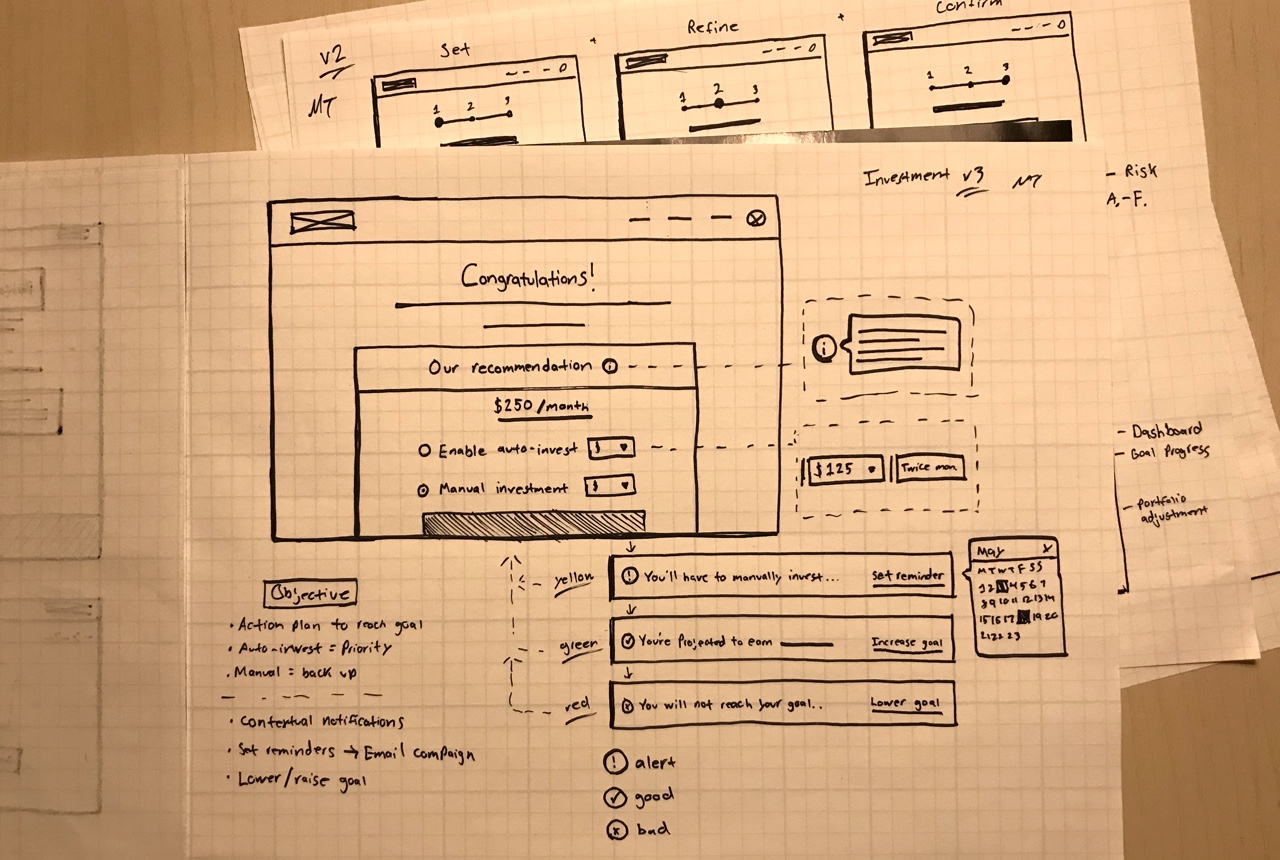 v2
MT
Set
+
Refine
+
Confirm
1 2 3
1 2 3
1 2 3
Investment v3 MT
- Risk
A.-F.
Congratulations!
Our recommendation i
$250/month
Enable auto-invest $
Manual investment $
i
$125
Twice mon
- Dashboard
- Goal Progress
- Portfolio
adjustment
yellow
! You'll have to manually invest... Set reminder
green
You're Projected to earn Increase goal
red
x You will not reach your goal.. Lower goal
May x
M T W T F S S
1 2 4 5 6 7
8 9 10 11 12 13 14
15 16 17 19 20
21 22 23
Objective
• Action plan to reach goal
• Auto-invest = Priority
• Manual = back up
• Contextual notifications
• Set reminders → Email campaign
• Lower/raise goal
! alert
✓ good
x bad